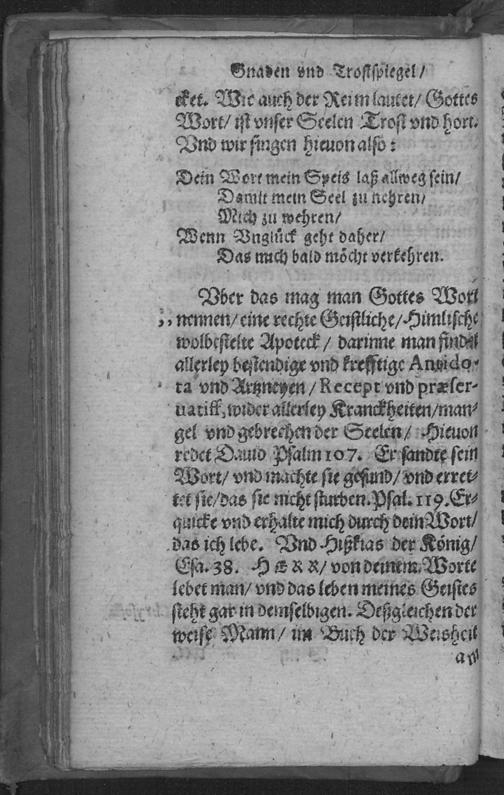 Gnaden vnd Trostspiegel/
cket. Wie auch der Reim lautet/ Gottes
Wort/ ist vnser Seelen Trost vnd hort.
Vnd wir singen hieuon also:
Dein Wort mein Speis laß allweg sein/
Damit mein Seel zu nehren/
Mich zu wehren/
Wenn Vnglück geht daher/
Das mich bald möcht verkehren.
Vber das mag man Gottes Wort
nennen/ eine rechte Geistliche/ Himlische
wolbestelte Apoteck/ darinne man findet
allerley bestendige vnd krefftige Antido-
ta vnd Artzneyen/ Recept vnd præser-
uatiff, wider allerley Kranckheiten/ man-
gel vnd gebrechen der Seelen/ Hieuon
redet Dauid Psalm 107. Er sandte sein
Wort/ vnd machte sie gesund/ vnd erret-
tet sie/ das sie nicht sturben. Psal. 119. Er-
quicke vnd erhalte mich durch dein Wort/
das ich lebe. Vnd Hißkias der König/
Esa. 38. HERR/ von deinem Worte
lebet man/ vnd das leben meines Geistes
steht gar in demselbigen. Deßgleichen der
weise Mann/ im Buch der Weisheit